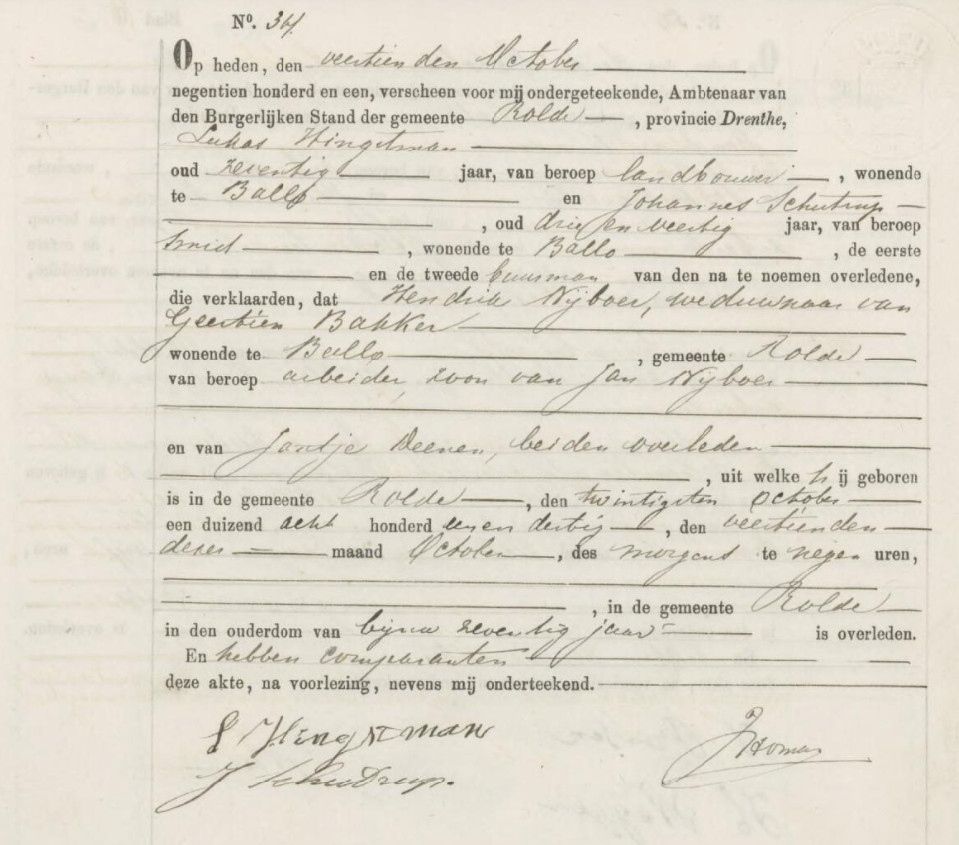 N°. 34.
Op heden, den veertienden October
negentien honderd en een, verscheen voor mij ondergeteekende, Ambtenaar van
den Burgerlijken Stand der gemeente Rolde, provincie Drenthe,
Lukas Hingstman
oud zeventig jaar, van beroep landbouwer, wonende
te Ballo en Johannes Schutrup
, oud drie en veertig jaar, van beroep
smid, wonende te Ballo, de eerste
en de tweede buurman van den na te noemen overledene,
die verklaarden, dat Hendrik Nijboer, weduwnaar van
Geertien Bakker
wonende te Ballo, gemeente Rolde
van beroep arbeider, zoon van Jan Nijboer
en van Jantje Deenen, beiden overleden
, uit welke hij geboren
is in de gemeente Rolde, den twintigsten October
een duizend acht honderd een en dertig, den veertienden
dezer maand October, des morgens te negen uren,
, in de gemeente Rolde
in den ouderdom van bijna zeventig jaar is overleden.
En hebben comparanten
deze akte, na voorlezing, nevens mij onderteekend.
L Hingstman
J Schutrup.
JHoman